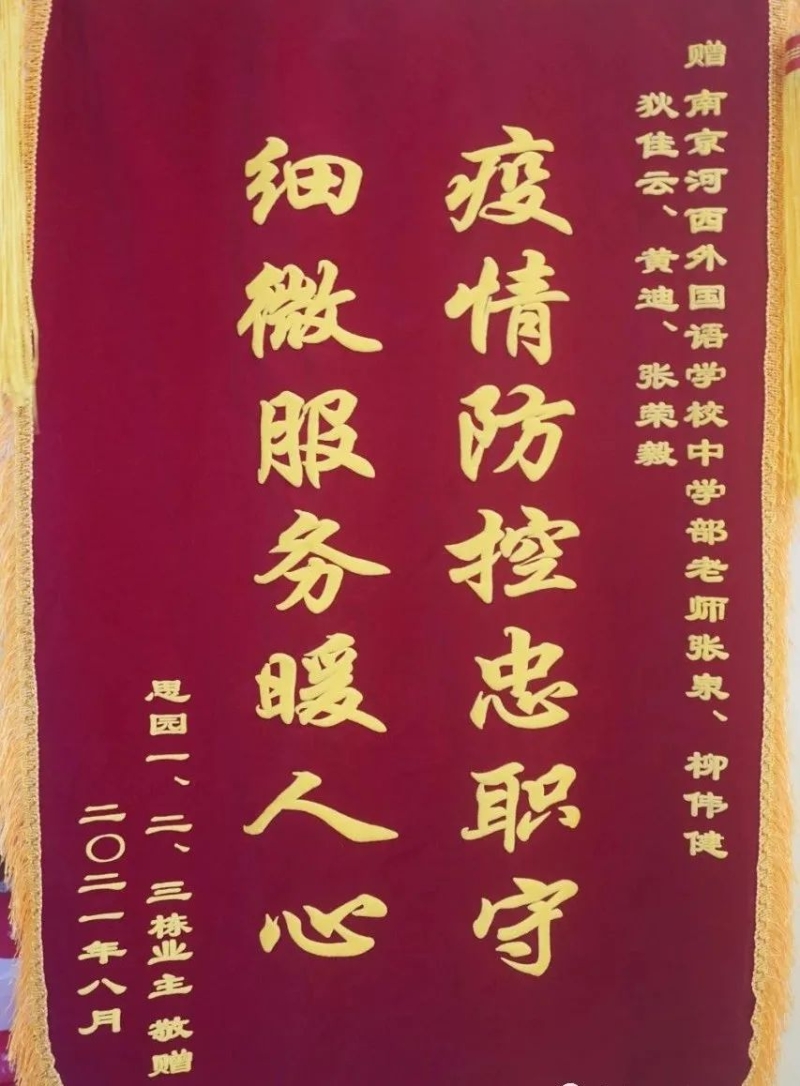 赠 南京河西外国语学校中学部老师张泉、柳伟健
狄佳云、黄迪、张荣毅
疫情防控忠职守
细微服务暖人心
思园一、二、三栋业主 敬赠
二〇二一年八月